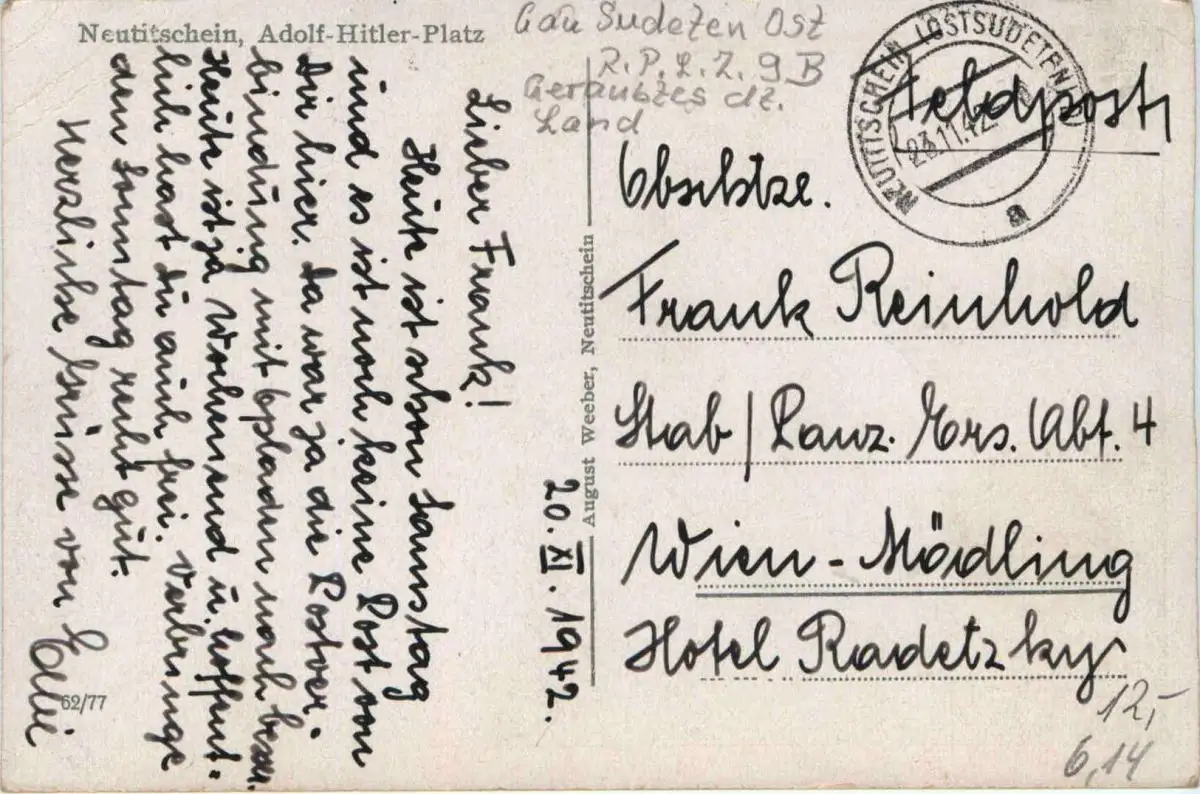 Neutitschein, Adolf-Hitler-Platz
Gau Sudeten Ost
R.P.L.Z. 9B
Geraubtes dt.
Land
NEUTITSCHEIN (OSTSUDETENL)
23.11.42
a
Feldpost
Obschtze.
Frank Reinhold
Stab/Panz. Ers. Abt. 4
Wien-Mödling
Hotel Radetzky
12,-
6,14
August Weeber, Neutitschein
20. XI. 1942.
Lieber Frank!
Heute ist schon Samstag
und es ist noch keine Post von
Dir hier. Da war ja die Postver-
bindung mit Opladen noch besser.
Heute ist ja Wochenend u. hoffent-
lich hast du auch frei. Verbringe
den Sonntag recht gut.
Herzliche Grüsse von
62/77